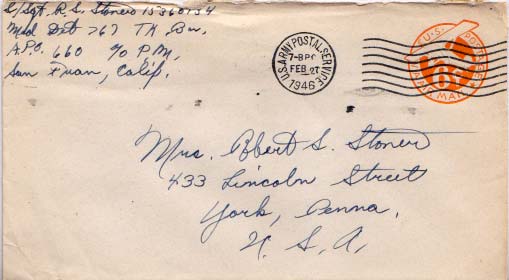 S/Sgt. R. S. Stoner 15360134
Med Det 767 TK Bn.
A.P.O. 660 c/o P.M.
San Fran, Calif.
U.S. ARMY POSTAL SERVICE
7-8PM
FEB 27
1946
U.S. POSTAGE
AIR MAIL
Mrs. Robert S. Stoner
433 Lincoln Street
York, Penna.
U. S. A.